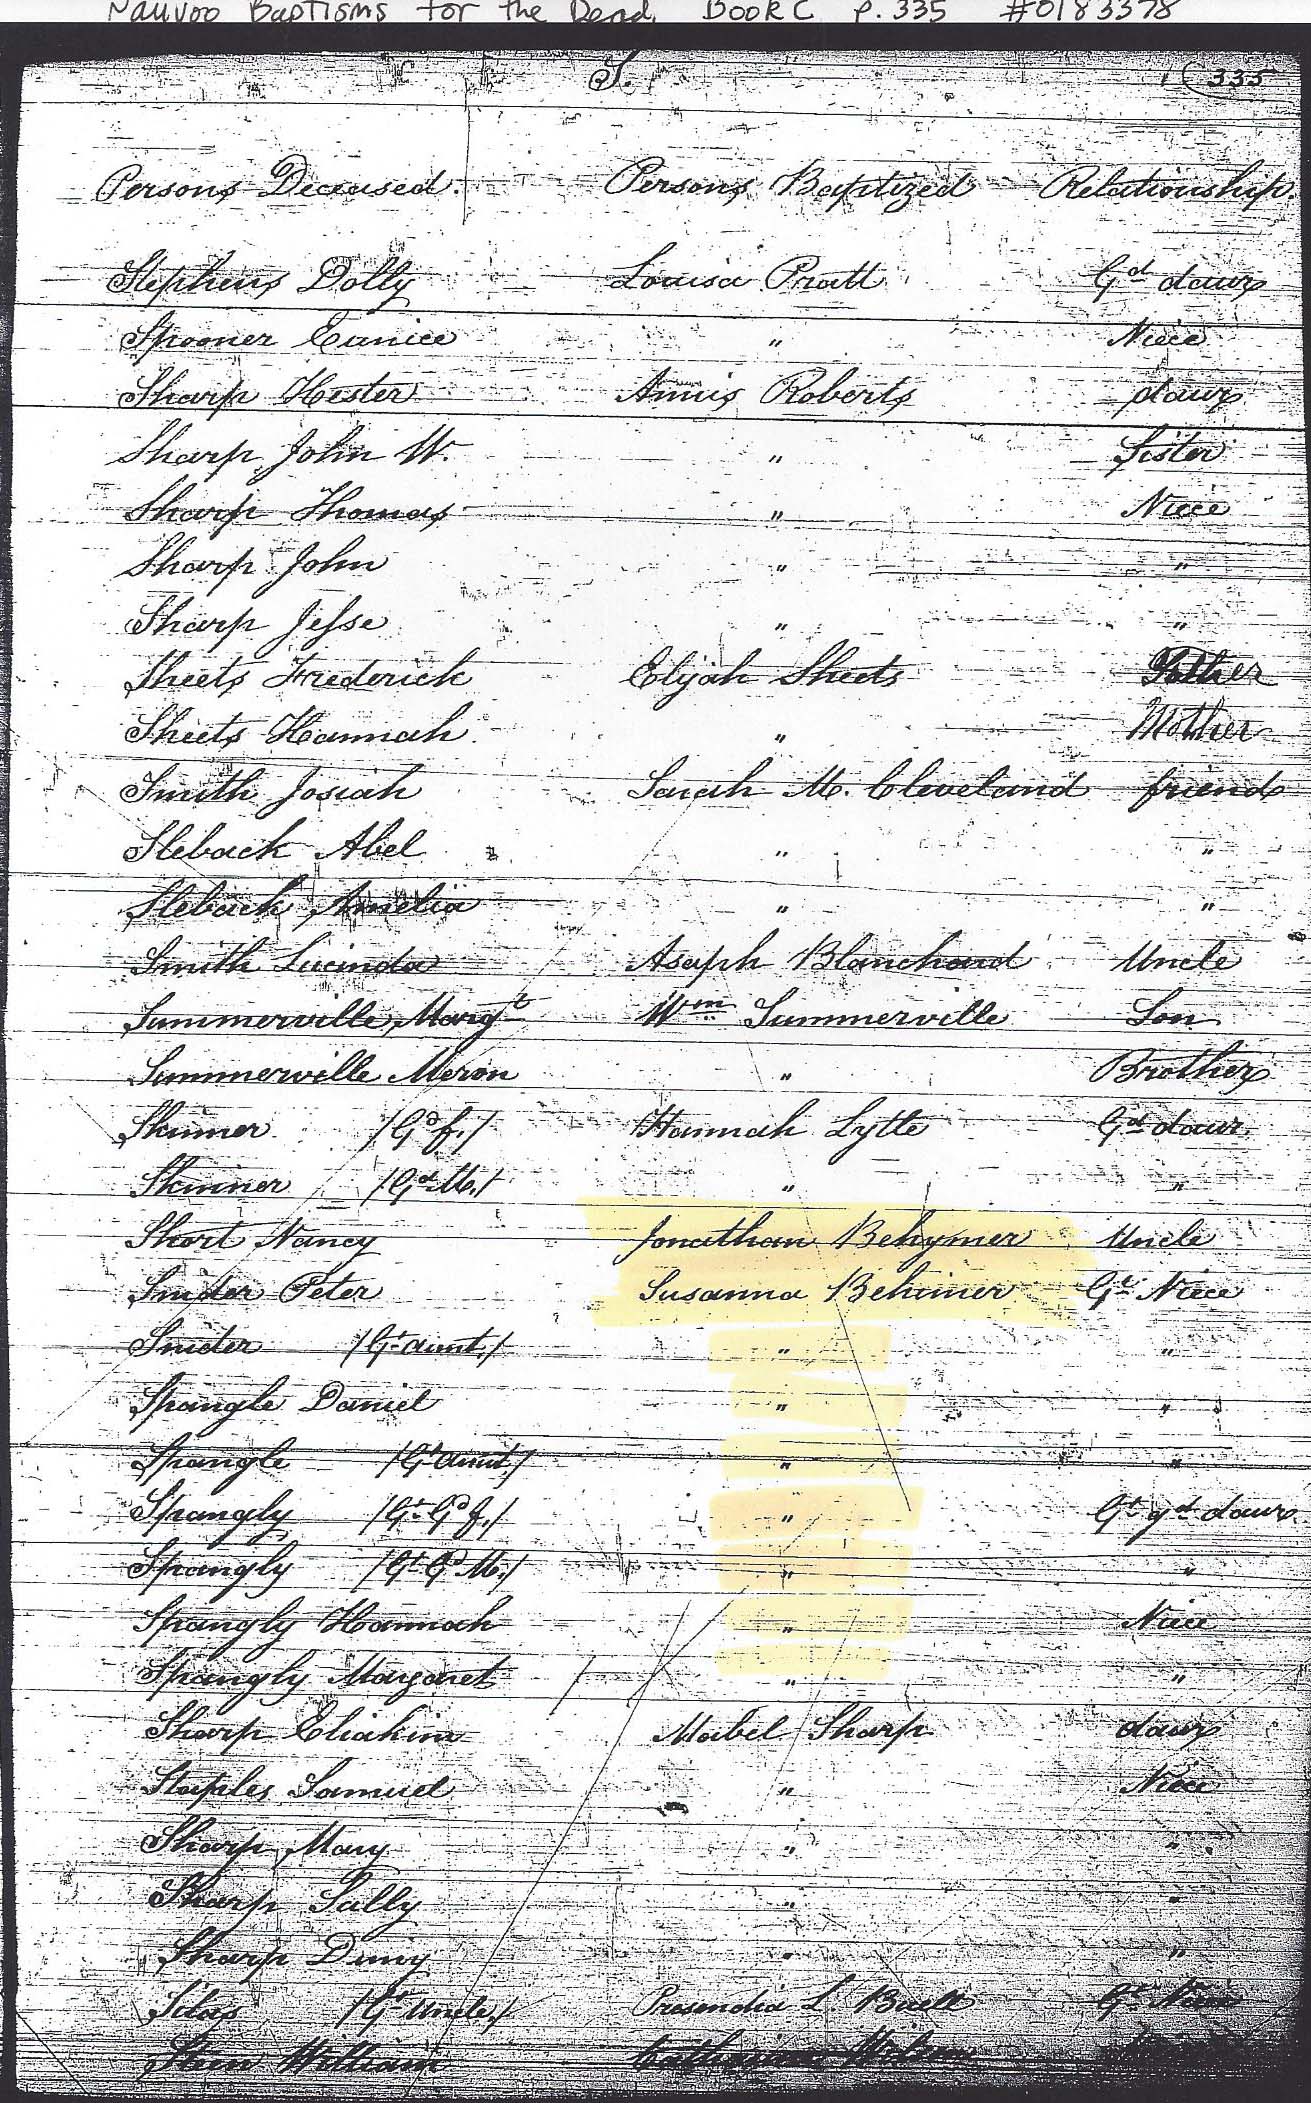 Nauvoo Baptisms for the Dead, Book C p. 335 #0183378
S. 335
Persons Deceased. Persons Baptized Relationship.
Stephens Dolly Louisa Pratt Gd daur
Spooner Eunice " Niece
Sharp Hester Annis Roberts daur
Sharp John W. " Sister
Sharp Thomas " Niece
Sharp John " "
Sharp Jesse " "
Sheets Frederick Elijah Sheets Father
Sheets Hannah " Mother
Smith Josiah Sarah M. Cleveland friend
Sleback Abel " "
Sleback Amelia " "
Smith Lucinda Asaph Blanchard Uncle
Summerville Margt Wm Summerville Son
Summerville Meron " Brother
Skinner /Gd f./ Hannah Lytle Gd daur
Skinner /Gd M./ " "
Short Nancy Jonathan Behymer Uncle
Snider Peter Susanna Behimer Gt Niece
Snider /Gt aunt/ " "
Spangle Daniel " "
Spangle /Gt aunt/ " "
Spangly /Gt Gd f./ " Gt gd daur
Spangly /Gt Gd M./ " "
Spangly Hannah " Niece
Spangly Margaret " "
Sharp Eliakim Mabel Sharp daur
Staples Samuel " Niece
Sharp Mary " "
Sharp Sally " "
Sharp " "
Silas /Gt Uncle/ Presendia L Buell Gt Niece
William